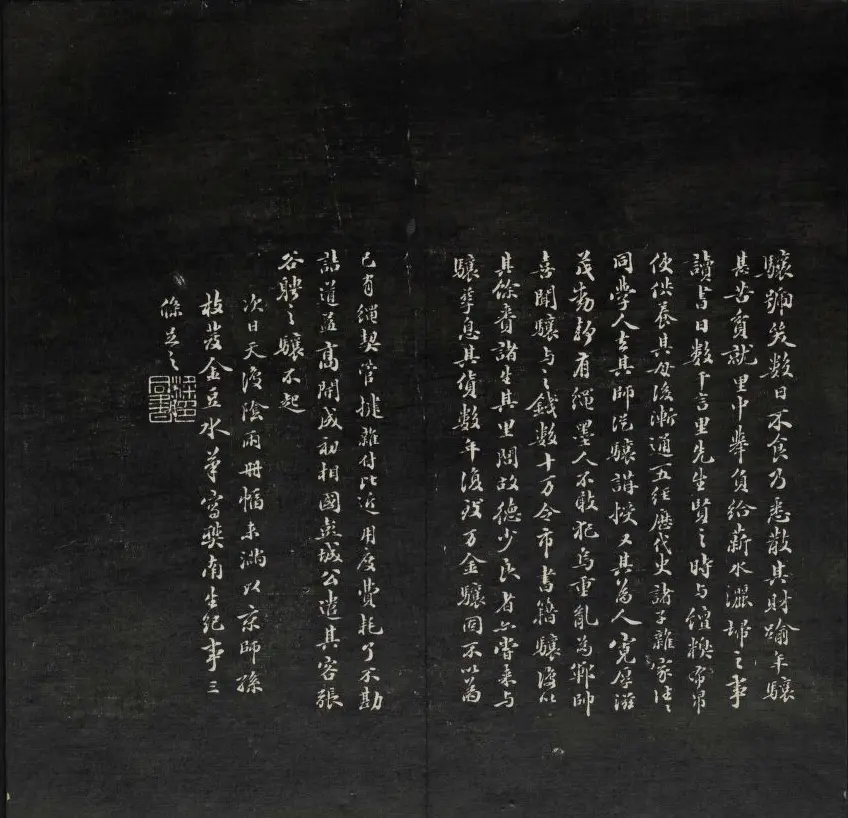 驤號哭數日不食乃悉散其財踰年驤
甚苦貧就里中舉負給薪水灑掃之事
讀書日數千言里先生賢之時与饘糗布帛
使供養其母後漸通五經歷代史諸子雜家往々
同學人去其師從驤講授又其為人寬厚滋
茂動有繩墨人不敢犯烏重亂為鄆帥
喜聞驤与之錢數十万令市書籍驤復以
其餘賚諸生其里閭故德少良者亦嘗來与
驤孳息其貨數年復致万金驤固不以為
己有繩契管揵雜付比近用度費耗了不勘
詰道益高開成初相國彭城公遣其客張
谷聘之驤不起
次日天復陰雨冊幅未滿以京師孫
枝發金豆水筆寫樊南生紀事三
條足之